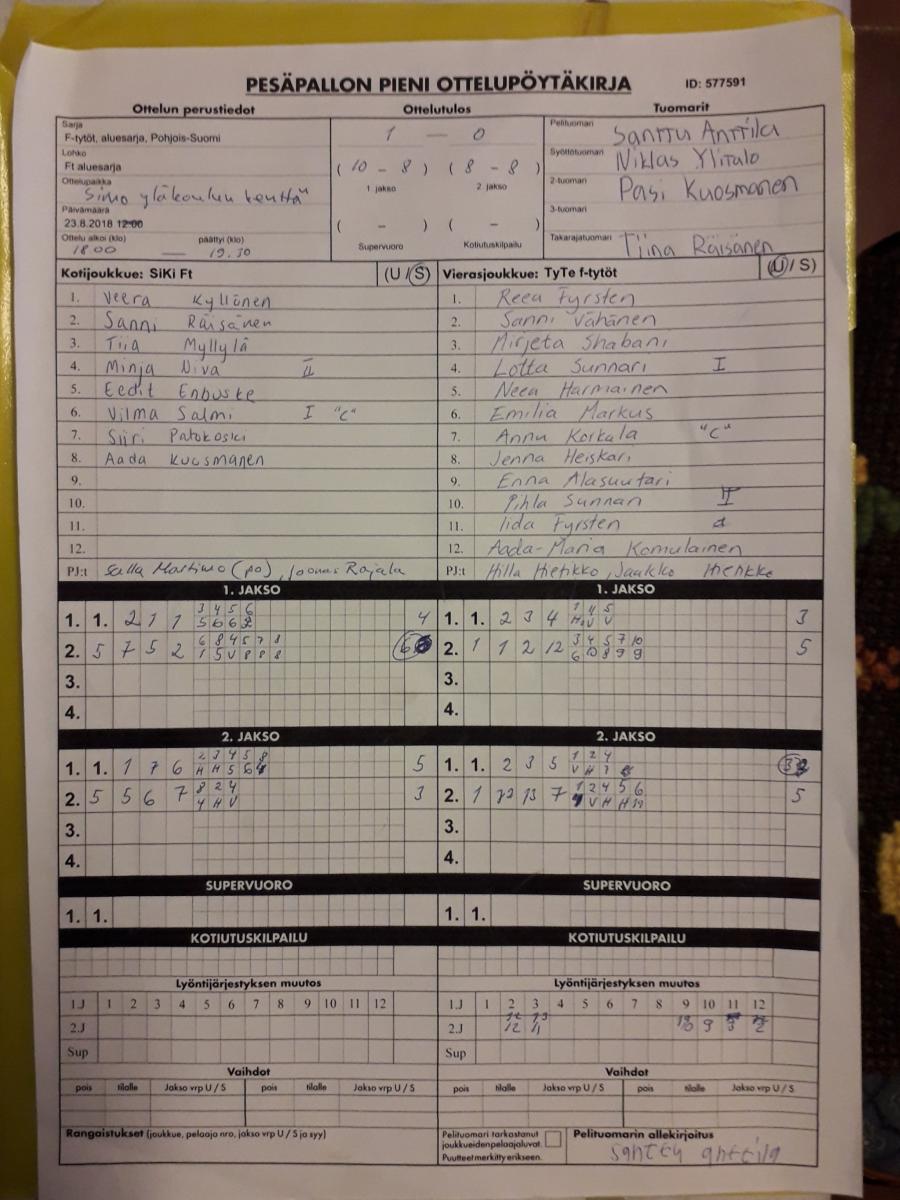 PESÄPALLON PIENI OTTELUPÖYTÄKIRJA
ID: 577591
Ottelun perustiedot
Ottelutulos
Tuomarit
Sarja
F-tytöt, aluesarja, Pohjois-Suomi
Lohko
Ft aluesarja
Ottelupaikka
Simo yläkoulun kenttä
Päivämäärä
23.8.2018 12:00
Ottelu alkoi (klo) päättyi (klo)
18.00 — 19.30
1 — 0
( 10 - 8 ) ( 8 - 8 )
1 jakso 2 jakso
( - ) ( - )
Supervuoro Kotiutuskilpailu
Pelituomari Santtu Anttila
Syöttötuomari Niklas Ylitalo
2-tuomari Pasi Kuosmanen
3-tuomari
Takarajatuomari Tiina Räisänen
Kotijoukkue: SiKi Ft (U / S)
1. Veera Kyllönen
2. Sanni Räisänen
3. Tiia Myllylä
4. Minja Niva II
5. Eedit Enbuske
6. Vilma Salmi I "C"
7. Siiri Patokoski
8. Aada Kuosmanen
9.
10.
11.
12.
PJ:t Salla Martimo (po), Joonas Rajala
Vierasjoukkue: TyTe f-tytöt (U / S)
1. Reea Fyrsten
2. Sanni Vähänen
3. Mirjeta Shabani
4. Lotta Sunnari I
5. Neea Harmainen
6. Emilia Markus
7. Annu Korkala "C"
8. Jenna Heiskari
9. Enna Alasuutari
10. Pihla Sunnari II
11. Iida Fyrsten
12. Aada-Maria Komulainen
PJ:t Hilla Hietikko, Jaakko Hietikko
1. JAKSO
1. 1. 2 1 1 3 4 5 6 4
2. 5 7 5 2 6 8 4 5 7 8 6
1 5 V 8 8 8
3.
4.
1. JAKSO
1. 1. 2 3 4 1 4 5 3
2. 1 1 2 12 3 4 5 7 10 5
6 10 8 9 9
3.
4.
2. JAKSO
1. 1. 1 7 6 2 3 4 5 8 5
H H 5 6
2. 5 5 6 7 8 2 4 3
4 H V
3.
4.
2. JAKSO
1. 1. 2 3 5 1 2 4 3
V H 7
2. 1 12 13 7 1 2 4 5 6 5
V H H
3.
4.
SUPERVUORO
1. 1.
SUPERVUORO
1. 1.
KOTIUTUSKILPAILU
KOTIUTUSKILPAILU
Lyöntijärjestyksen muutos
1.J 1 2 3 4 5 6 7 8 9 10 11 12
2.J
Sup
Lyöntijärjestyksen muutos
1.J 1 2 3 4 5 6 7 8 9 10 11 12
2.J 12 11 9
Sup
Vaihdot
pois tilalle Jakso vrp U / S pois tilalle Jakso vrp U / S
Vaihdot
pois tilalle Jakso vrp U / S pois tilalle Jakso vrp U / S
Rangaistukset (joukkue, pelaaja nro, jakso vrp U / S ja syy)
Pelituomari tarkastanut
joukkueiden pelaajaluvat.
Puutteet merkitty erikseen.
Pelituomarin allekirjoitus
santtu anttila